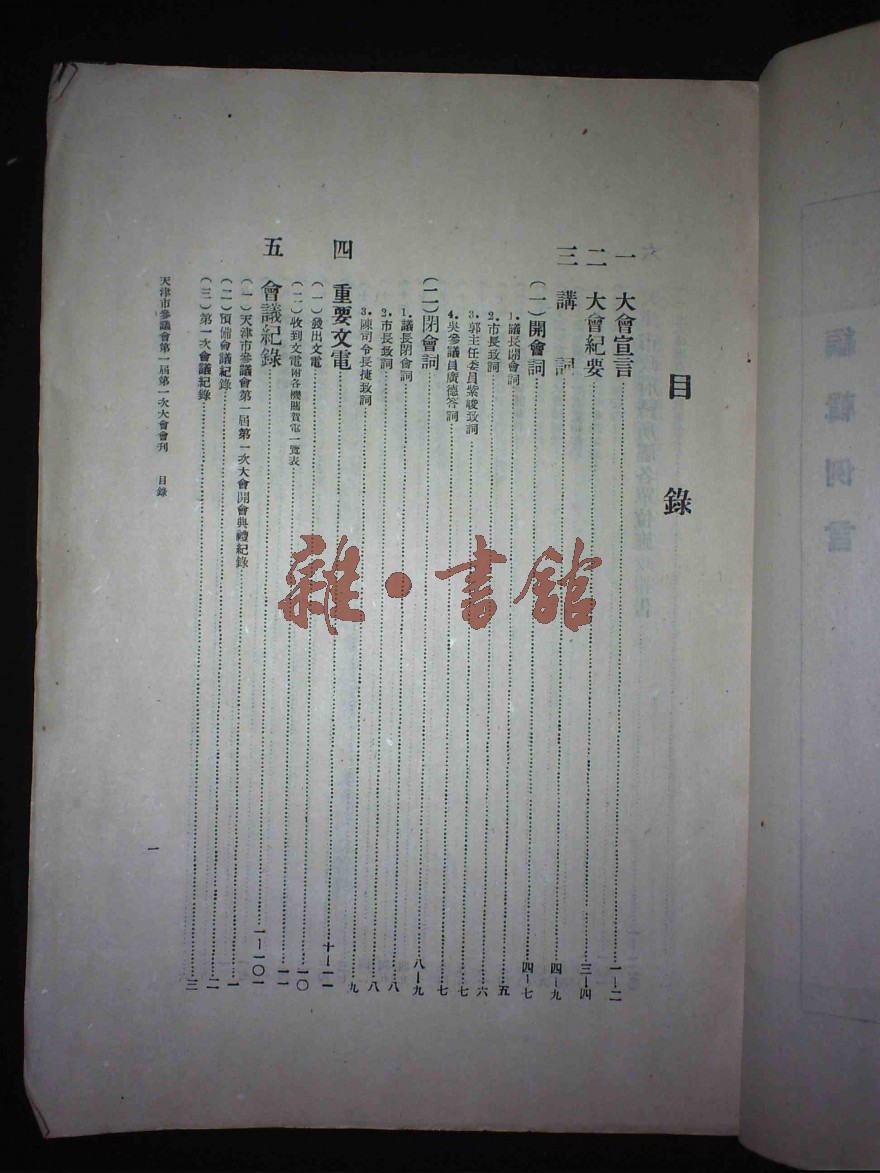 目錄
一 大會宣言 一—二
二 大會紀要 三—四
三 講詞 四—九
（一）開會詞 四—七
1.議長開會詞 五
2.市長致詞 六
3.郭主任委員紫峻致詞 七
4.吳參議員廣德答詞 七
（二）閉會詞 八—九
1.議長閉會詞 八
2.市長致詞 八
3.陳司令長捷致詞 九
四 重要文電 十—一一
（一）發出文電 一〇
（二）收到文電附各機關賀電一覽表 一一
五 會議紀錄 一—一〇一
（一）天津市參議會第一屆第一次大會開會典禮紀錄 一
（二）預備會議紀錄 二
（三）第一次會議紀錄 三
天津市參議會第一屆第一次大會會刊 目錄
一
雜·書館
編輯例言